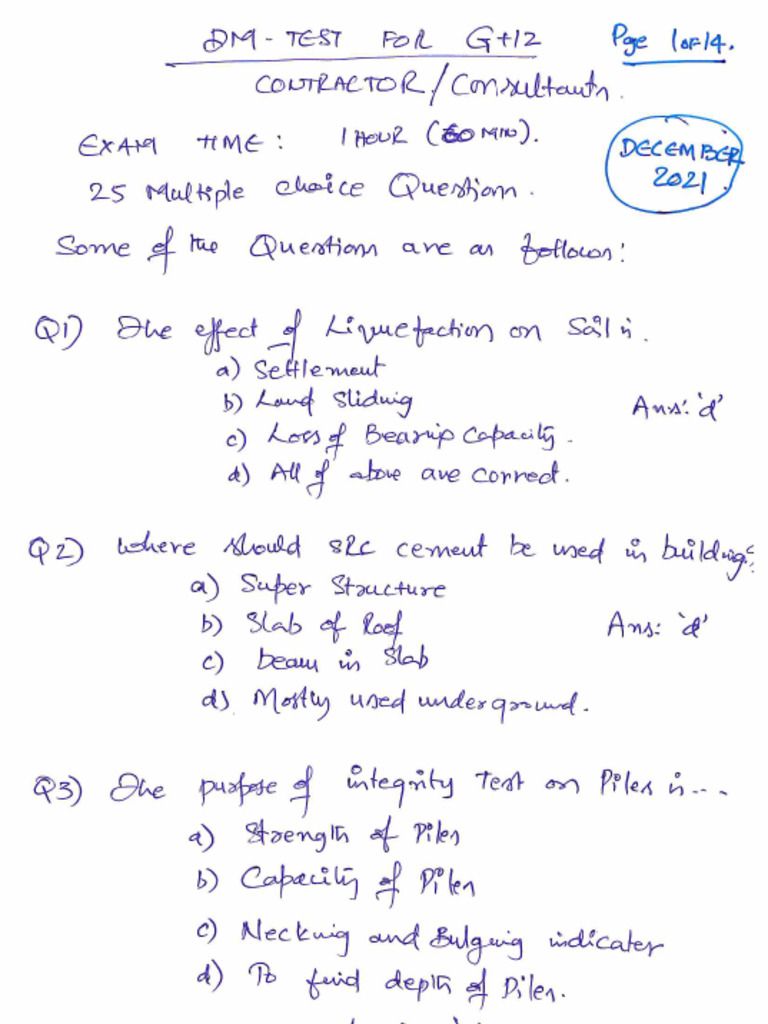 DM - TEST FOR G+12
Page 1 of 14.
CONTRACTOR/Consultants.
EXAM TIME: 1 HOUR (60 MIN).
DECEMBER
2021.
25 Multiple choice Question.
Some of the Questions are as follows:
Q1) The effect of Liquefaction on Soil is.
a) Settlement
b) Land Sliding
Ans: 'd'
c) Loss of Bearing Capacity.
d) All of above are correct.
Q2) Where should SRC cement be used in building?
a) Super Structure
b) Slab of Roof
Ans: 'd'
c) beam in Slab
d) Mostly used underground.
Q3) The purpose of integrity Test on Piles is...
a) Strength of Piles
b) Capacity of Piles
c) Necking and Bulging indicater
d) To find depth of Piles.